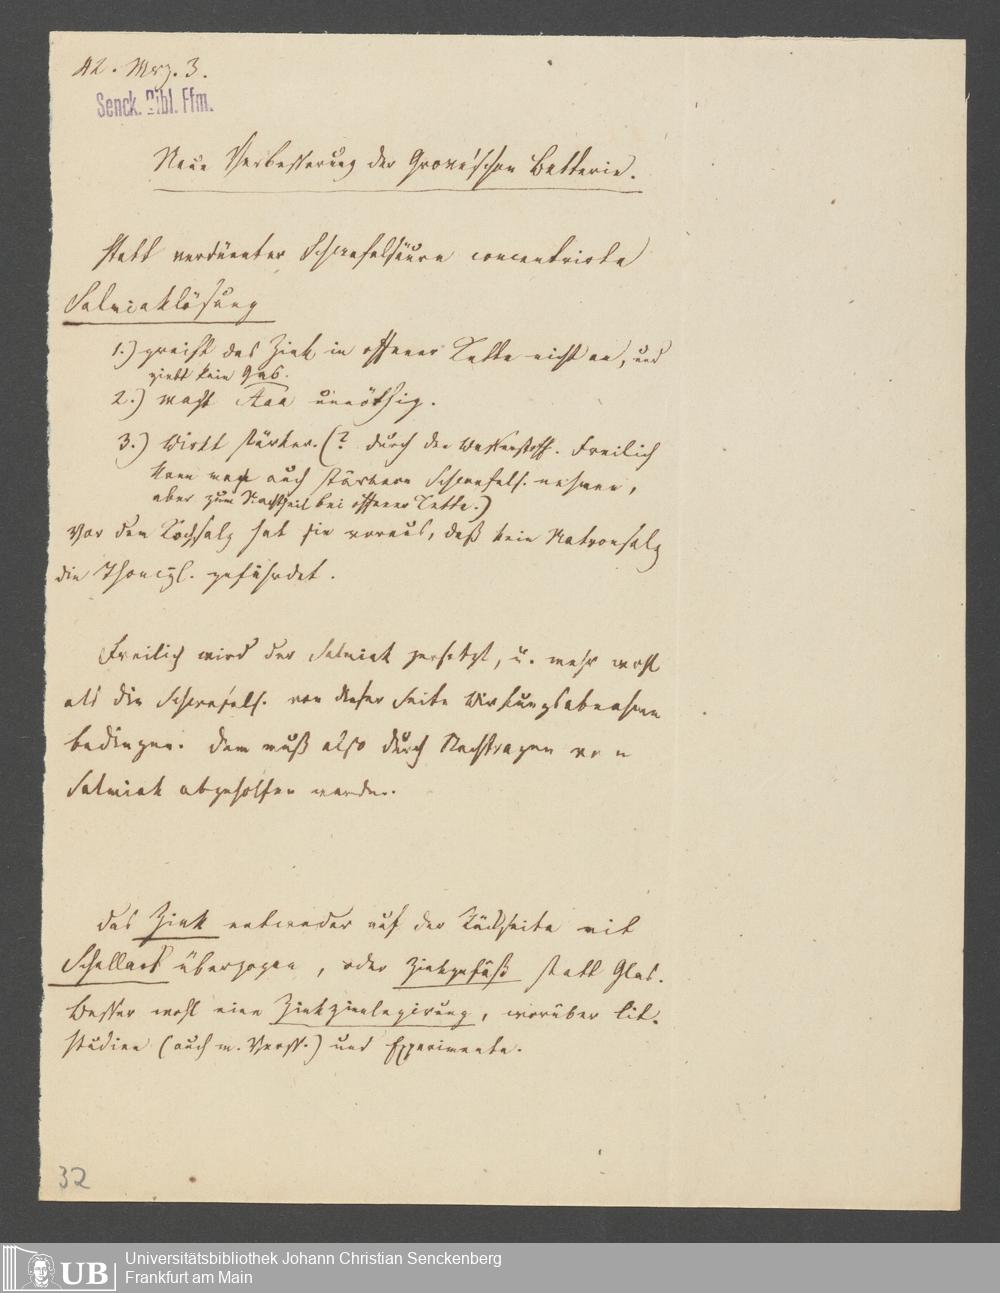 42. Mrz. 3.
Senck. Bibl. Ffm.
Neue Verbesserung der Grove'schen Batterie.
Statt verdünnter Schwefelsäure concentrirte
Salmiaklösung
1.) greift das Zink in offener Kette nicht an, und
giebt kein Gas.
2.) macht unnöthig.
3.) Wirkt stärker. (? durch den Wasserstoff. Freilich
kann man auch stärkere Schwefels. nehmen,
aber zum Nachtheil bei offener Kette.)
Vor dem Kochsalz hat sie voraus, daß kein Natronsalz
die Thoncyl. gefährdet.
Freilich wird der Salmiak zersetzt, u. mehr wohl
als die Schwefels. von dieser Seite Wirkungsabnahme
bedingen. Dem muß also durch Nachtragen von
Salmiak abgeholfen werden.
Das Zink entweder auf der Rückseite mit
Schellack überzogen, oder Zinkgefäß statt Glas.
Besser wohl eine Zinkzinnlegirung, worüber Lit.
Studien (auch m. Verss.) und Experimente.
32
Universitätsbibliothek Johann Christian Senckenberg
Frankfurt am Main
UB